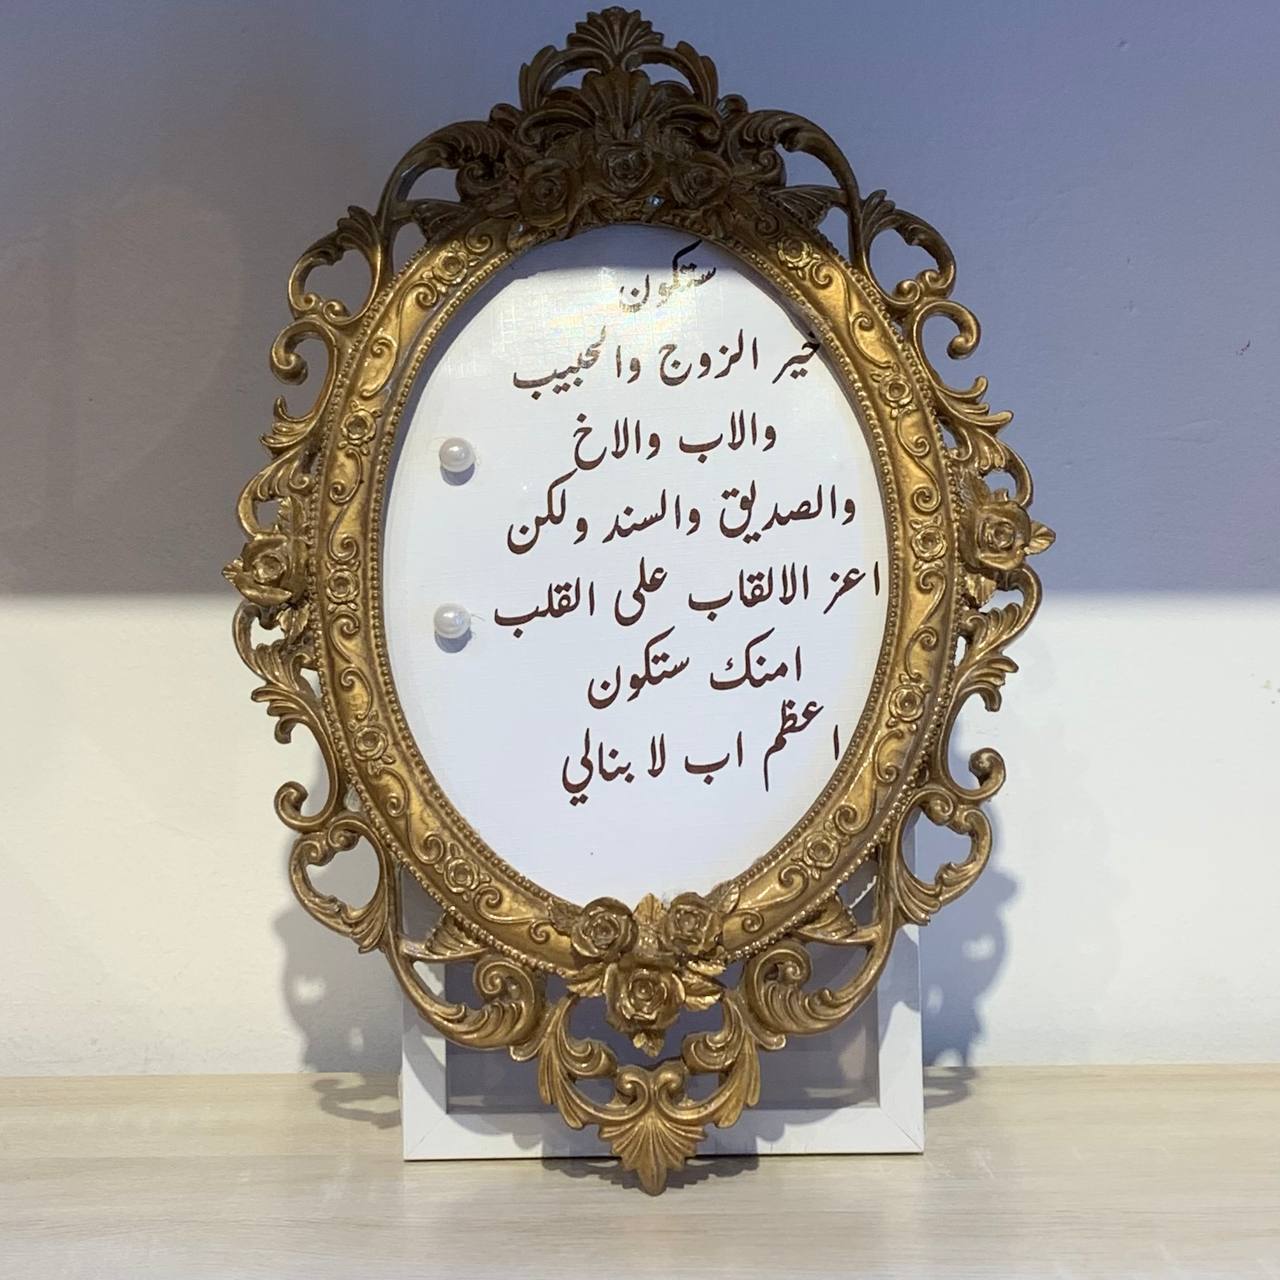 ستكون
خير الزوج والحبيب
والاب والاخ
والصديق والسند ولكن
اعز الالقاب على القلب
امنك ستكون
اعظم اب لا بنالي